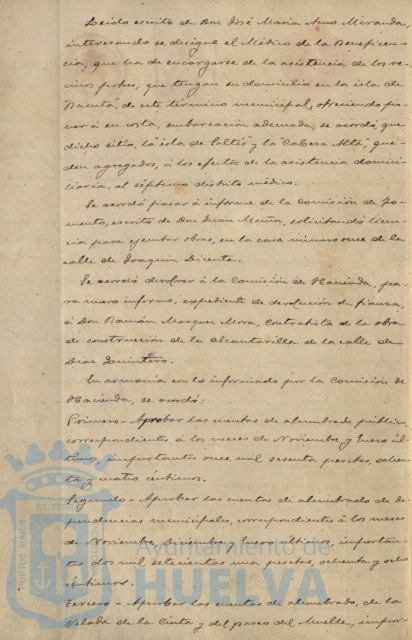 Leido escrito de Don José Maria Amo Miranda,
interesando se designe el Médico de la Beneficen-
cia, que ha de encargarse de la asistencia de los ve-
cinos pobres, que tengan su domicilio en la isla de
Bacuta, de este término municipal, ofreciendo po-
ner á su costa, embarcación adecuada, se acordó, que
dicho sitio, la "isla de Saltés" y la "Cabeza Alta", que-
den agregados, á los efectos de la asistencia domici-
liaria, al séptimo distrito médico.
Se acordó pasar á informe de la Comisión de Fo-
mento, escrito de Don Juan Muñoz, solicitando licen-
cia para ejecutar obras, en la casa número once de la
calle de Joaquin Dicenta.
Se acordó devolver á la Comisión de Hacienda, pa-
ra nuevo informe, expediente de devolución de fianza,
á Don Ramón Marquez Mora, contratista de la obra
de construcción de la alcantarilla de la calle de
Diaz Quintero.
En armonia con lo informado por la Comisión de
Hacienda, se acordó:
Primero - Aprobar las cuentas de alumbrado público,
correspondientes á los meses de Noviembre y Enero úl-
timos, importantes once mil sesenta pesetas, ochen-
ta y cuatro céntimos.
Segundo - Aprobar las cuentas de alumbrado de de-
pendencias municipales, correspondientes á los meses
de Noviembre, Diciembre y Enero últimos, importan-
tes dos mil setecientas una pesetas, ochenta y ocho
céntimos.
Tercero - Aprobar las cuentas de alumbrado, de la
Velada de la Cinta y del paseo del Muelle, impor-
Ayuntamiento de
HUELVA
PORTUS MARIS
ET TERRÆ